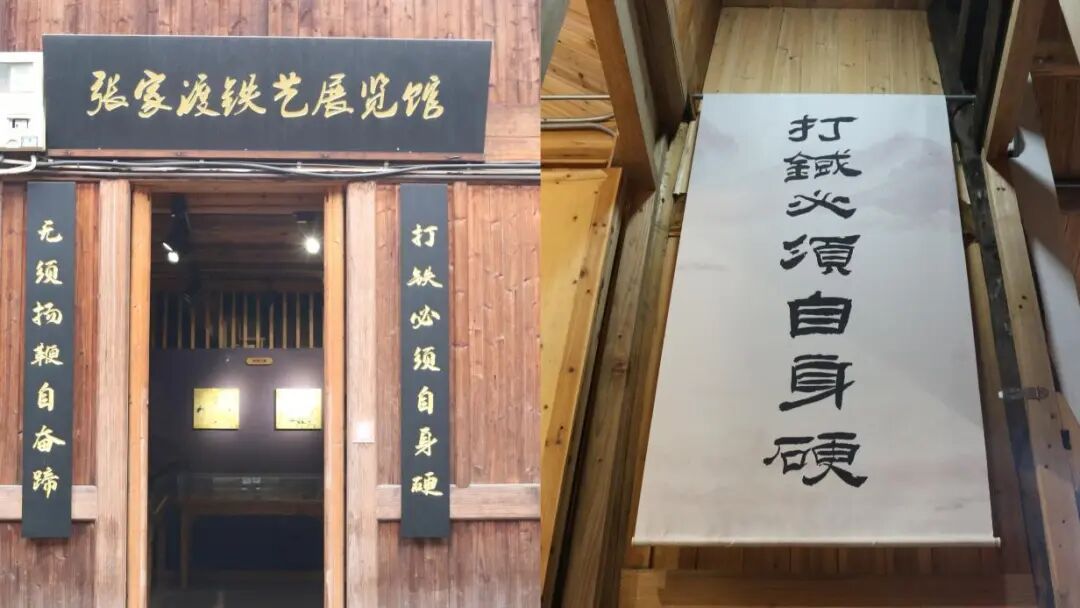 张家渡铁艺展览馆
打铁必须自身硬
无须扬鞭自奋蹄
打鐵必須自身硬